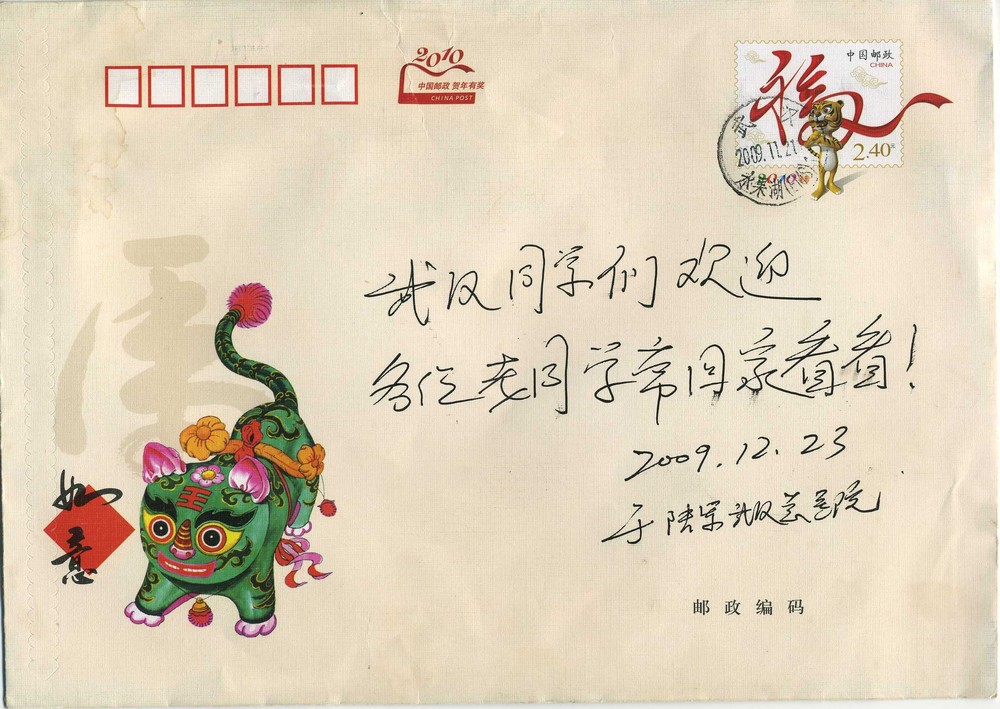 2010
中国邮政 贺年有奖
CHINA POST
福
中国邮政
CHINA
2.40元
武汉
2009.11.21
水果湖
2010
武汉同学们欢迎
各位老同学常回家看看!
2009.12.23
于陆军武汉总医院
虎
如意
王
邮政编码